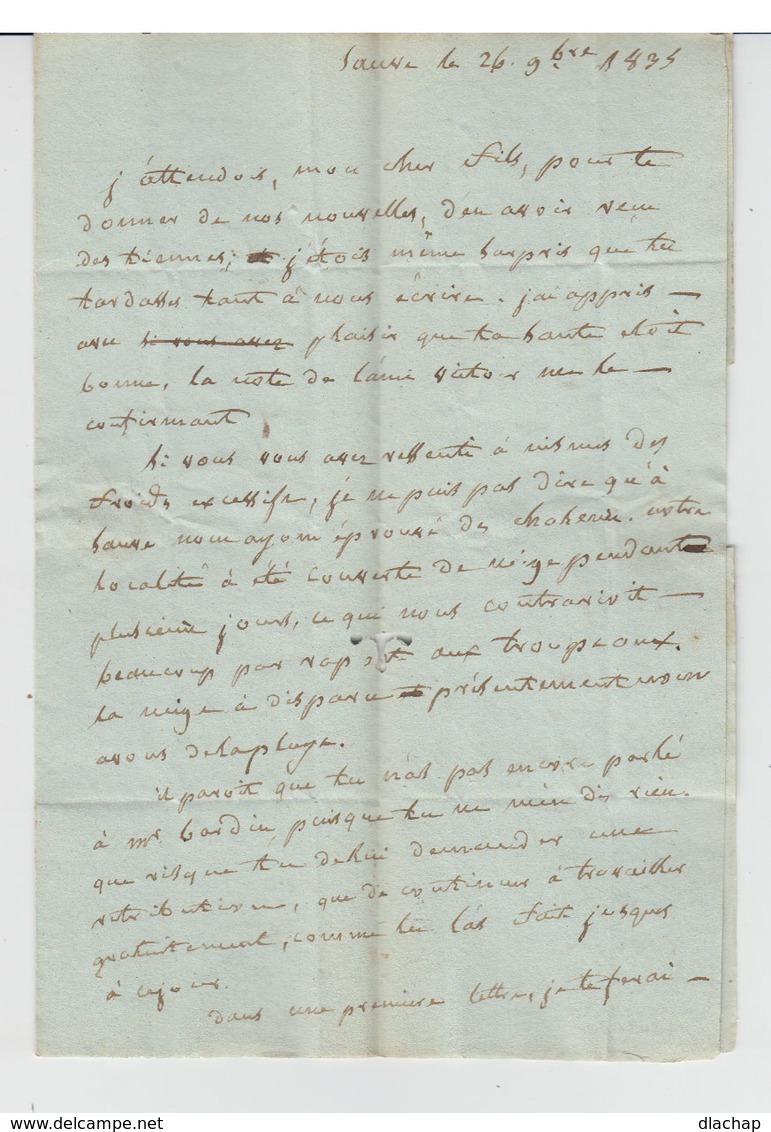 Sauve le 26. 9bre 1835
j'attendois, mon cher fils, pour te
donner de nos nouvelles, d'en avoir reçu
des tiennes; j'étois même surpris que tu
tardasses tant à nous écrire. j'ai appris —
avec si vous avez plaisir que ta santé étoit
bonne, la note de l'ami victor me le —
confirmant
Si vous vous avez ressenti à nismes des
froids excessifs, je ne puis pas dire qu'à
Sauve nous ayons éprouvé des chaleurs. notre
localité à été couverte de neige pendant
plusieurs jours, ce qui nous contrarioit —
beaucoup par raport aux troupeaux.
la neige à disparu et présentement nous
avons de la pluye.
il paroit que tu n'as pas encore parlé
à mr bardin puisque tu ne m'en dis rien.
que risque tu de lui demander une
retribution, que de continuer à travailler
gratuitement, comme tu l'as fait jusques
à ce jour.
dans une premiere lettre, je te ferai —
dlachap
www.delcampe.net